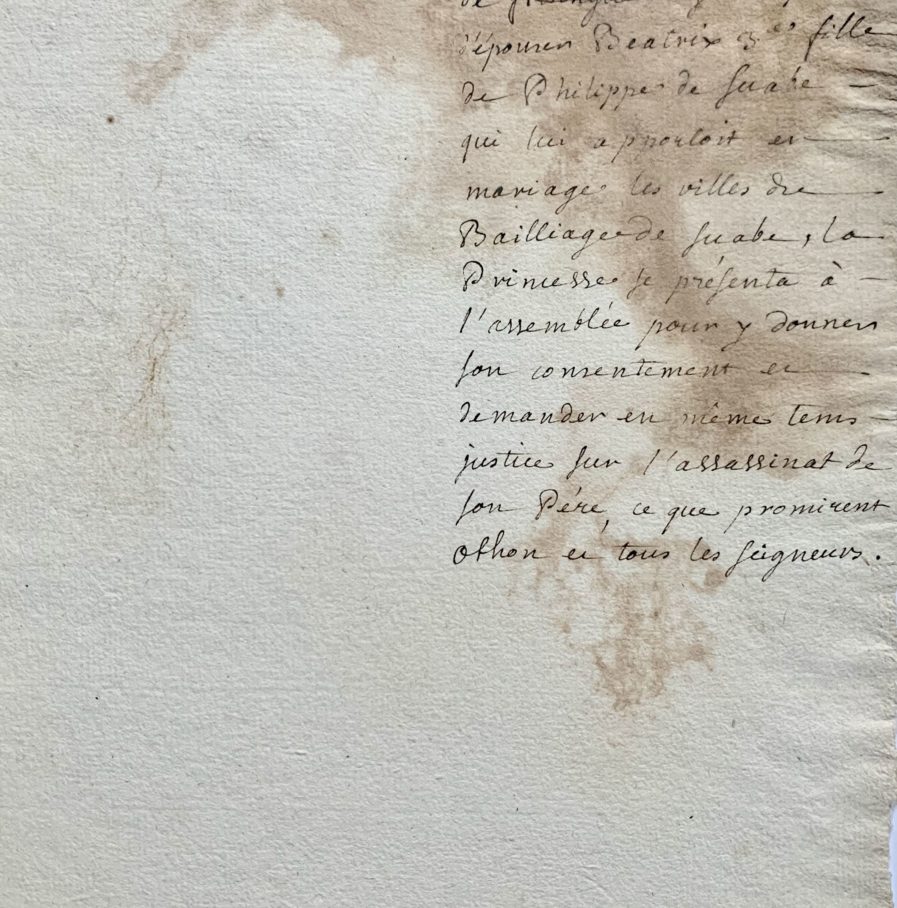 d'épouser Beatrix 3.e fille
de Philippe de Suabe
qui lui apportoit en
mariage les villes du
Bailliage de Suabe, la
Princesse se présenta à
l'assemblée pour y donner
son consentement et
demander en même tems
justice sur l'assassinat de
son Pére, ce que promirent
Othon et tous les seigneurs.